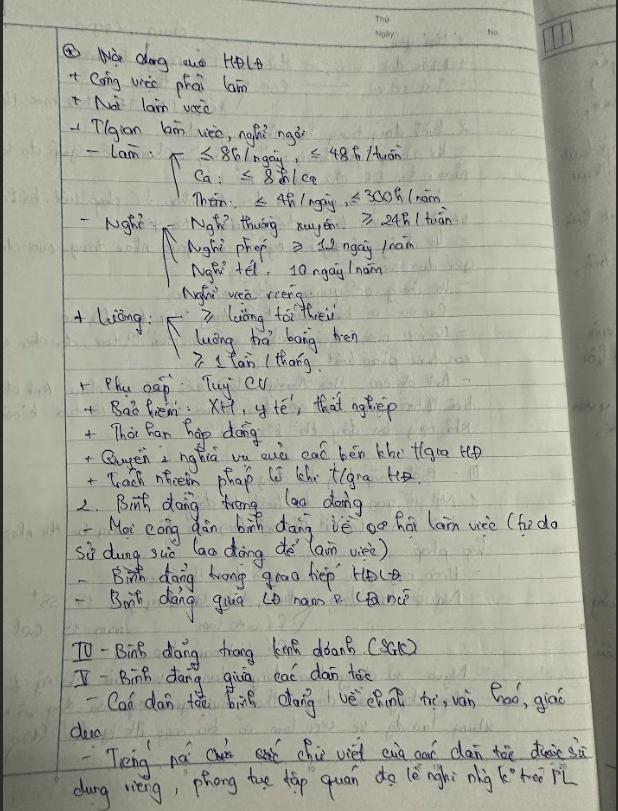 Thứ
Ngày No.
⊛ Nội dung của HĐLĐ
+ Công việc phải làm
+ Nơi làm việc
+ T/gian làm việc, nghỉ ngơi
- Làm: ≤ 8h/ngày, ≤ 48h/tuần
Ca: ≤ 8h/ca
Thêm: ≤ 4h/ngày, ≤ 300h/năm
- Nghỉ - Nghỉ thường xuyên: ≥ 24h/tuần
Nghỉ phép ≥ 12 ngày/năm
Nghỉ tết: 10 ngày/năm
Nghỉ việc riêng
+ Lương: ≥ lương tối thiểu
lương trả bằng tiền
≥ 1 lần/tháng
+ Phụ cấp: Tuỳ CV
+ Bảo hiểm: XH, y tế, thất nghiệp
+ Thời hạn hợp đồng
+ Quyền & nghĩa vụ của các bên khi t/gia HĐ
+ Trách nhiệm pháp lí khi t/gia HĐ.
2. Bình đẳng trong lao động
- Mọi công dân bình đẳng về cơ hội làm việc (tự do
sử dụng sức lao động để làm việc)
- Bình đẳng trong giao tiếp HĐLĐ
- Bình đẳng giữa LĐ nam & LĐ nữ
IV - Bình đẳng trong kinh doanh (SGK)
V - Bình đẳng giữa các dân tộc
- Các dân tộc bình đẳng về chính trị, văn hoá, giáo
dục
- Tiếng nói chữ viết của các dân tộc được sử
dụng riêng, phong tục tập quán lễ nghi k° trái PL